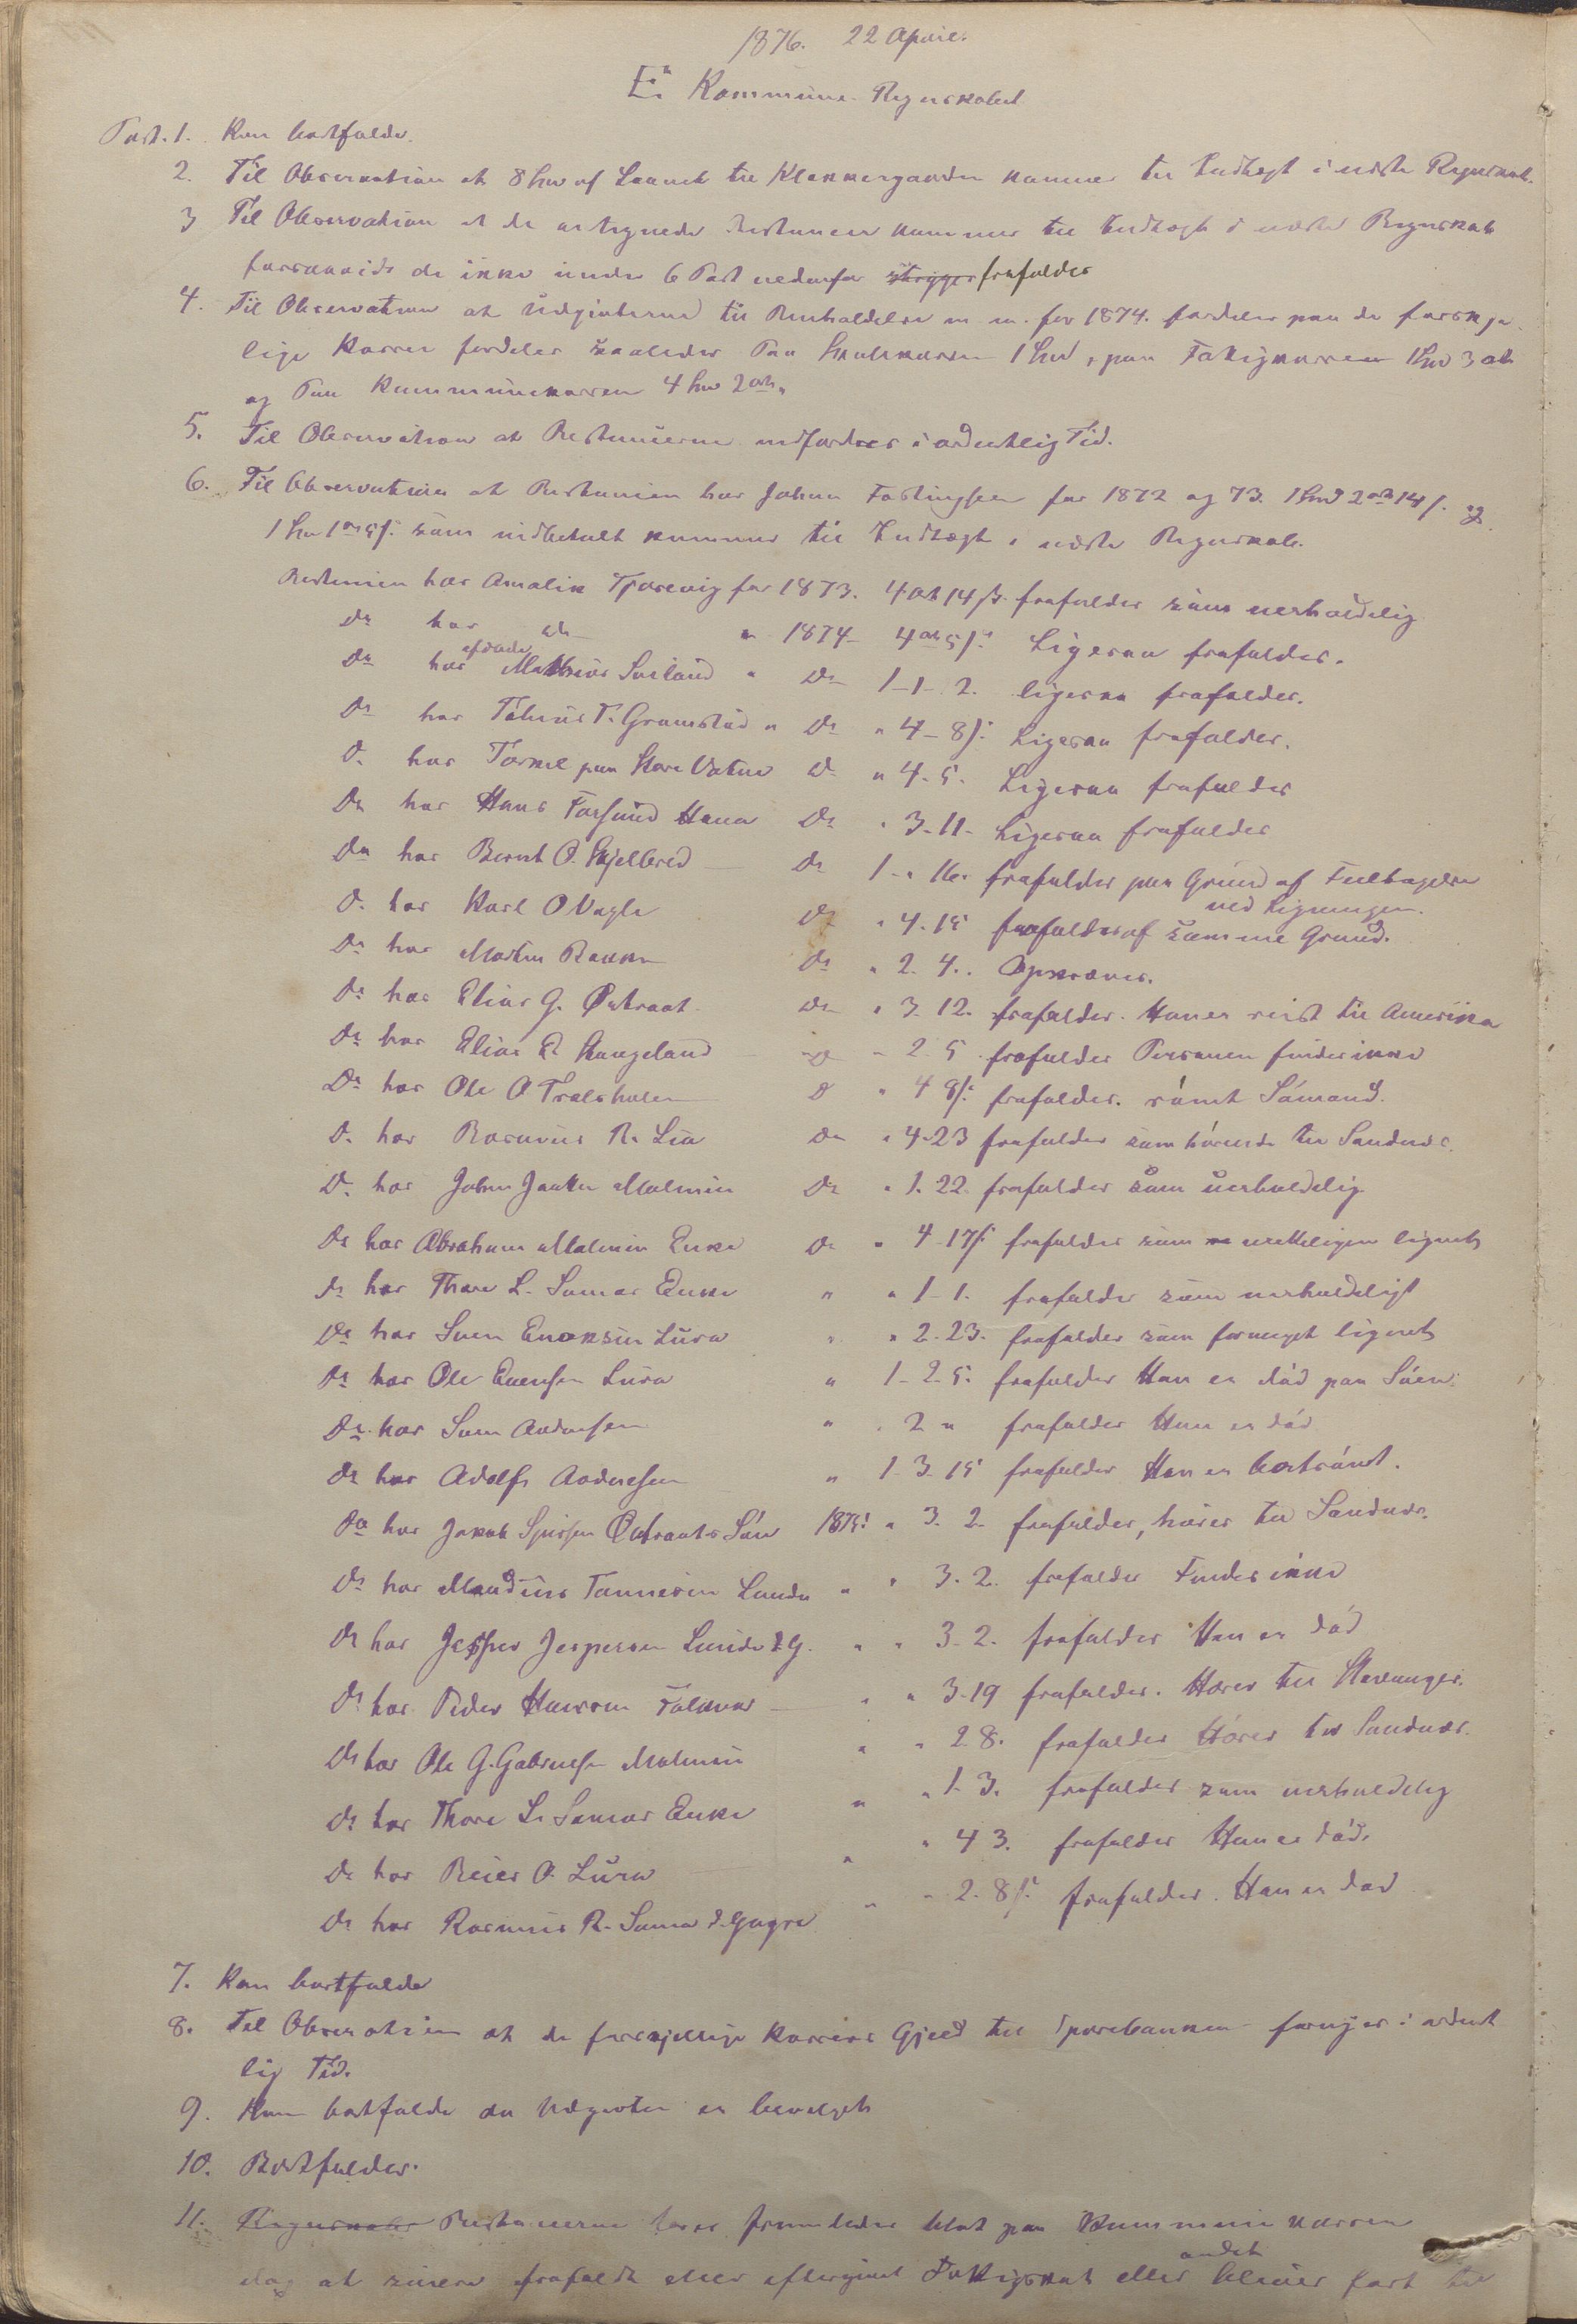 1876. 22 April.
E. Kommune-Regnskabet
Post. 1. Kan bortfalde.
2. Til Observation at 8 Spd af Laanet til Klokkergaarden kommer til Indtægt i næste Regnskab.
3 Til Observation at de antegnede Restancer kommer til Indtægt i næste Regnskab
forsaavidt de ikke under 6 Post nedenfor stryges frafaldes
4. Til Observation at Udgivterne til Renholdelse m. m. for 1874. fordeles paa de forskje
lige Kasser fordeles saaledes Paa Skolekassen 1 Spd, paa Fattigkassen 1 Spd 3 ort
og Paa Kommunekassen 4 Spd 2 ort.
5. Til Observation at Restancerne indfordres i ordentlig Tid.
6. Til Observation at Restancen hos Johan Fastingsen for 1872 og 73. 1 Spd 2 ort 14 s. og
1 Spd 1 ort 5 s. som indbetalt kommer til Indtægt i næste Regnskab.
Restancen hos Amalie Tjosevig for 1873. 4 ort 14 s. frafaldes som uerholdelig
Do hos do " 1874 4 ort 5 s. Ligesaa frafaldes.
Do hos afdøde Mathias Sviland " Do 1-1-2. ligesaa frafaldes.
Do hos Tønnes T. Gramstad " Do " 4-8 s. Ligesaa frafaldes.
Do hos Torkel paa Store Vatne Do " 4-5. Ligesaa frafaldes
Do hos Hans Forsund Hana Do " 3-11- Ligesaa frafaldes
Do hos Bernt O. Skjelbred Do 1-" 16. frafaldes paa Grund af Feiltagelse
ved Ligningen.
Do hos Karl O Vagle Do " 4.15 frafaldes af samme Grund.
Do hos Morten Bakken Do " 2. 4. Opkræves.
Do hos Elias G. Østraat Do " 3-12. frafaldes. Han er reist til Amerika
Do hos Elias E Haugeland Do " 2. 5 frafaldes Personen findes ikke
Do hos Ole O Træsholen Do " 4 8 s. frafaldes. rømt Sømand.
Do hos Rasmus R. Lia Do " 4-23 frafaldes som hørende til Sandnes.
Do hos Johan Malmin Do " 1. 22 frafaldes som uerholdelig
Do hos Abraham Malmin Enke Do " 4-17 s. frafaldes som urettelígen lignet
Do hos Thore L. Somas Enke " " 1-1. frafaldes som uerholdeligt
Do hos Sven Enoksen Lura " " 2-23. frafaldes som formeget lignet
Do hos Ole Evensen Lura " 1-2-5. frafaldes Han er død paa Søen.
Do hos Sven Andersen " . 2 " frafaldes Han er død
Do hos Adolf Andersen " 1-3-15 frafaldes Han er bortrømt.
Do hos Jakob Østraats Søn 1875. " 3. 2. frafaldes, hører til Sandnes.
Do hos Mandius Tønnesen Lunde " " 3. 2. frafaldes Findes ikke
Do hos Jesper Jespersen Lunde d.y. " " 3-2. frafaldes Han er død
Do hos Peder Hansson " " 3-19 frafaldes. Hører til Stavanger.
Do hos Ole G. Gabrielsen Malmin " " 2 8. frafaldes Hører til Sandnes.
Do hos Thore L. Somas Enke " " 1-3. frafaldes som uerholdelig
Do hos Reier O. Lura " " 4 3. frafaldes Han er død.
Do hos Rasmus R. Soma " " 2. 8 s. frafaldes. Han er død
7. Kan bortfalde
8. Til Observation at de forskjellige Kassers Gjeld til Sparebanken fornyes i ordent
lig Tid.
9. Kan bortfalde da Udgivten er bevilget
10. Bortfalder.
11. Regnskabs Restancerne føres fremdeles blot paa Kommunekassen
dog at senere frafaldt eller eftergivet Fattigskat eller andet bliver ført til